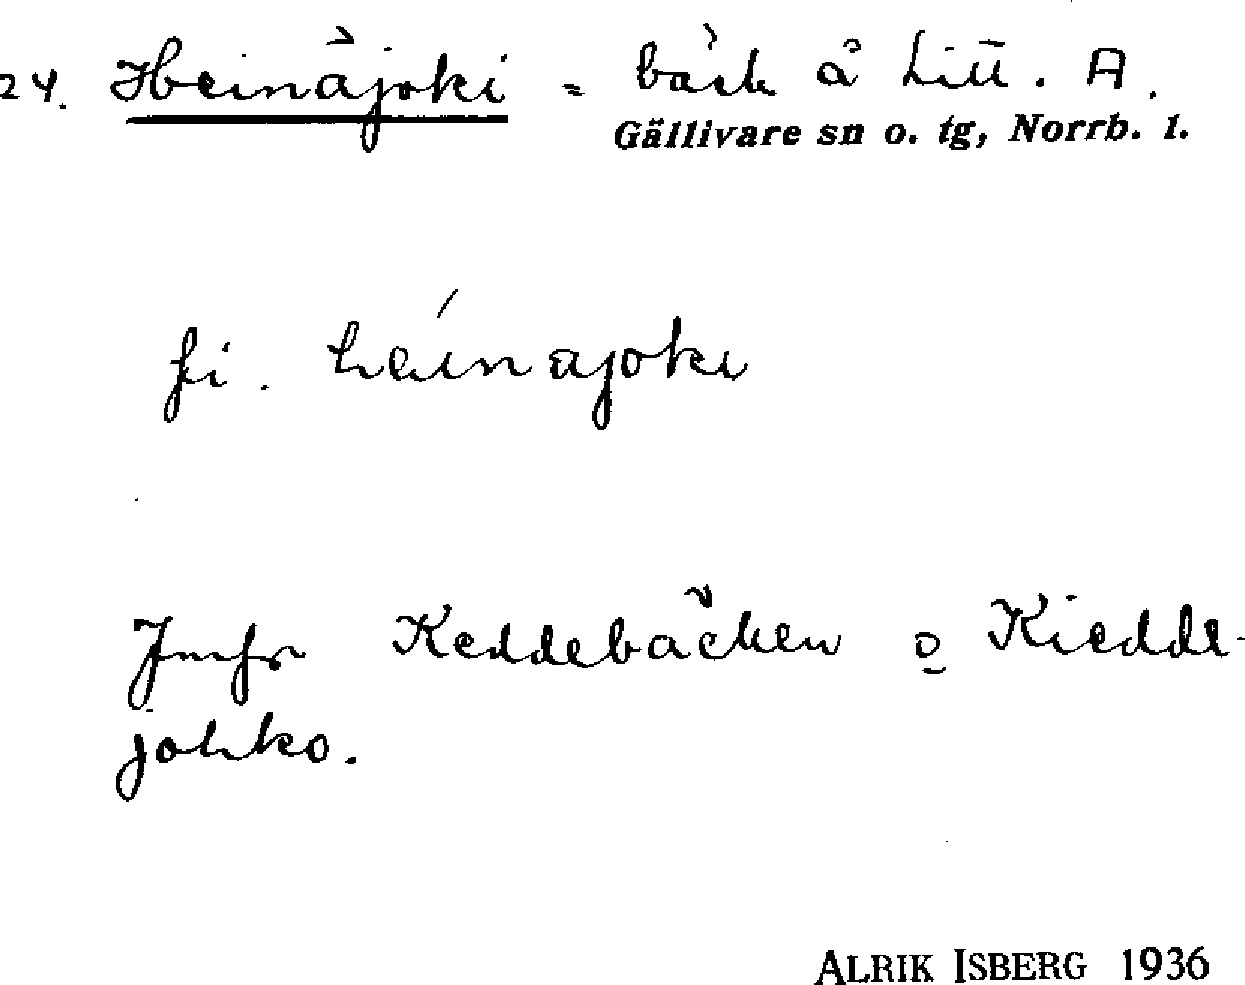 24. Heinäjoki = bäck å Litt. A.
Gällivare sn o. tg, Norrb. l.
fi. héinäjoki
Jmfr Keddebäcken o Kiedde-
johko.
ALRIK ISBERG 1936